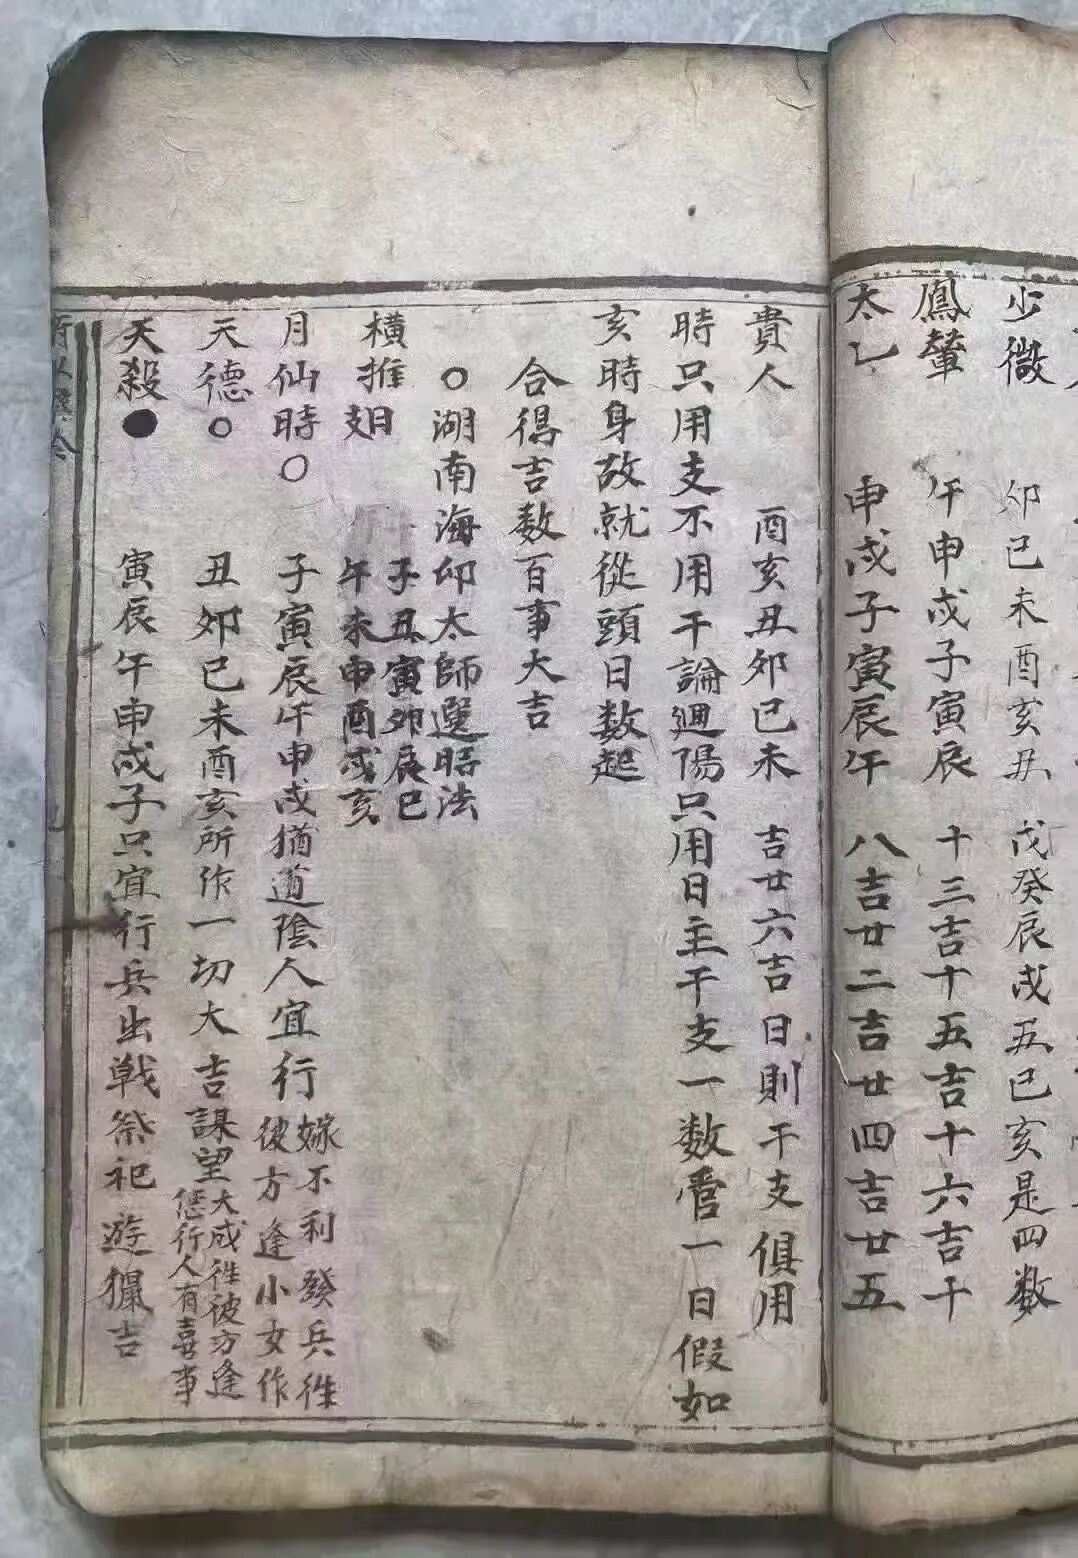 少微 卯巳未酉亥丑 戊癸辰戌五巳亥是四数
鳳輦 午申戌子寅辰 十三吉十五吉十六吉千
太乙 申戌子寅辰午 八吉廿二吉廿四吉廿五
貴人 酉亥丑卯巳未 吉廿六吉日則干支俱用
時只用支不用干論廻陽只用日主干支一数管一日假如
亥時身故就從頭日数起
合得吉数百事大吉
○湖南海卬太師選時法
横推支日 子丑寅卯辰巳
午未申酉戌亥
月仙時○ 子寅辰午申戌猶道陰人宜行嫁不利發兵徃
彼方逢小女作
天德○ 丑卯巳未酉亥所作一切大吉謀望大成徃彼方逢
行人有喜事
天殺● 寅辰午申戌子只宜行兵出戰祭祀遊獵吉